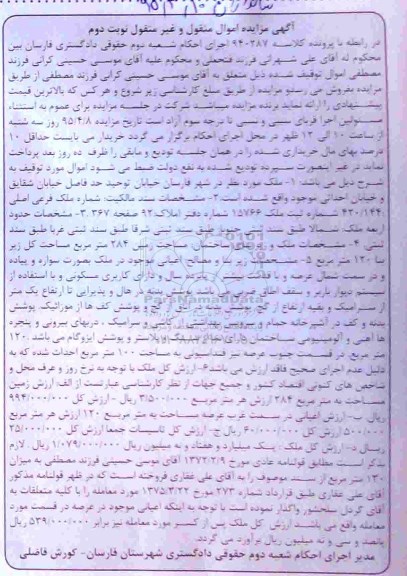 آگهی مزایده اموال منقول و غیر منقول نوبت دوم
در رابطه با پرونده کلاسه ۹۴۰۲۸۷ اجرای احکام شعبه دوم حقوقی دادگستری فارسان بین
محکوم له آقای علی شهرانی فرزند فتحعلی و محکوم علیه آقای موسی حسینی کرانی فرزند
مصطفی اموال توقیف شده ذیل متعلق به آقای موسی حسینی کرانی فرزند مصطفی از طریق
مزایده بفروش می رسد و مزایده از طریق مبلغ کارشناسی زیر شروع و هر کس که بالاترین قیمت
پیشنهادی را ارائه نماید برنده مزایده میباشد شرکت در جلسه مزایده برای عموم به استثناء
مسئولین اجرا قربای سببی و نسبی تا درجه سوم آزاد است تاریخ مزایده ۹۵/۴/۸ روز سه شنبه
از ساعت ۱۰ الی ۱۲ ظهر در محل اجرای احکام برگزار می گردد خریدار می بایست حداقل ۱۰
درصد بهای مال خریداری شده را در همان جلسه تودیع و مابقی را ظرف ده روز بعد پرداخت
نماید در غیر اینصورت سپرده تودیع شده به نفع دولت ضبط می شود اموال مورد توقیف به
شرح ذیل می باشد: ۱- ملک مورد نظر در شهر فارسان خیابان توحید حد فاصل خیابان شقایق
و خیابان احداثی موجود واقع شده است ۲- مشخصات سند مالکیت: شماره ملک فرعی اصلی
۴۲۰/۱۴۴۰ شماره ثبت ملک ۱۵۷۶۶ شماره دفتر املاک ۹۲ صفحه ۳۶۷ ۳- مشخصات حدود
اربعه ملک: شمالا طبق سند ثبتی جنوبا طبق سند ثبتی شرقا طبق سند ثبتی غربا طبق سند
ثبتی ۴- مشخصات ملک و زیربنای ساختمان: مساحت زمین ۲۸۴ متر مربع مساحت کل زیر
بنا ۱۲۰ متر مربع ۵- مشخصات زیر بنا و مصالح اعیانی موجود در ملک بصورت سواره و پیاده
و در سمت شمال عرصه و با قدمت بیشتر از پانزده سال و دارای کاربری مسکونی و با استفاده از
سیستم دیوار باربر و سقف اطاق ضربی می باشد پوشش بدنه در هال و پذیرایی تا ارتفاع یک متر
از سرامیک و بقیه ارتفاع از گچ پوشش بدنه در اتاق از گچ و پوشش کف ها از موزائیک پوشش
بدنه و کف در آشپزخانه حمام و سرویس بهداشتی از کاشی و سرامیک ، دربهای بیرونی و پنجره
ها آهنی و آلومینیومی ساختمان دارای نمای سنگ و پلاستر و پوشش ایزوگام می باشد ۱۲۰
متر مربع، در قسمت جنوب عرصه نیز فنداسیونی به مساحت ۱۰۰ متر مربع احداث شده که به
دلیل عدم اجرای صحیح فاقد ارزش می باشد ۶- ارزش کل ملک با توجه به نرخ روز و عرف محل و
شاخص های کنونی اقتصاد کشور و جمیع جهات از نظر کارشناسی عبارتست از الف ارزش زمین
مساحت به متر مربع ۲۸۴ ارزش هر متر مربع ۳/۵۰۰/۰۰۰ ریال – ارزش کل ۹۹۴/۰۰۰/۰۰۰
ریال. ب- ارزش اعیانی در سمت غرب عرصه مساحت به متر مربع ۱۲۰ ارزش هر متر مربع
۵۰۰/۰۰۰ ارزش کل ۶۰/۰۰۰/۰۰۰ ریال ج- ارزش کل تاسیسات جمعا ارزش کل ۲۵/۰۰۰/۰۰۰
ریال د- ارزش کل ملک : یک میلیارد و هفتاد و نه میلیون ریال ۱/۰۷۹/۰۰۰/۰۰۰ ریال . لازم
بذکر است مطابق قولنامه عادی مورخ ۱۳۷۲/۲/۹ آقای موسی حسینی فرزند مصطفی به میزان
۱۳۰ متر مربع از سند موصوف را به آقای علی غفاری فروخته است که در ظهر قولنامه مذکور
آقای علی غفاری طبق قرارداد شماره ۲۷۳ مورخ ۱۳۷۵/۳/۲۲ مورد معامله را با کلیه متعلقات به
آقای گردل سلحشور واگذار نموده است با توجه به اینکه اعیانی موجود در عرصه در قسمت مورد
معامله واقع می باشند ارزش کل ملک پس از کسر مورد معامله نیز برابر ۵۳۹/۰۰۰/۰۰۰ ریال
پانصد و سی و نه میلیون ریال برآورد می گردد.
مدیر اجرای احکام شعبه دوم حقوقی دادگستری شهرستان فارسان- کورش فاضلی